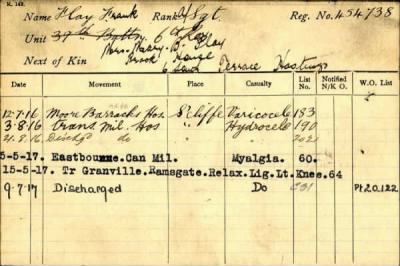 R. 149.
Name Flay Frank Rank A/Sgt. Reg. No. 454738
Unit 39th Battn 6th Res
Mrs. Mary B. Flay
Next of Kin House
6 Terrace Hastings
Date Movement Place Casualty List No. Notified N/K O. W.O. List
12-7-16 Moore Barracks Hos. S'cliffe Varicocele 183
3-8-16 trans. Mil. Hos " Hydrocele 190
21-8-16 Dischgd do 2021
5-5-17. Eastbourne.Can Mil. Myalgia. 60.
15-5-17. Tr Granville.Ramsgate.Relax.Lig.Lt.Knee.64
9-7-17 Discharged Do Pt 20.122